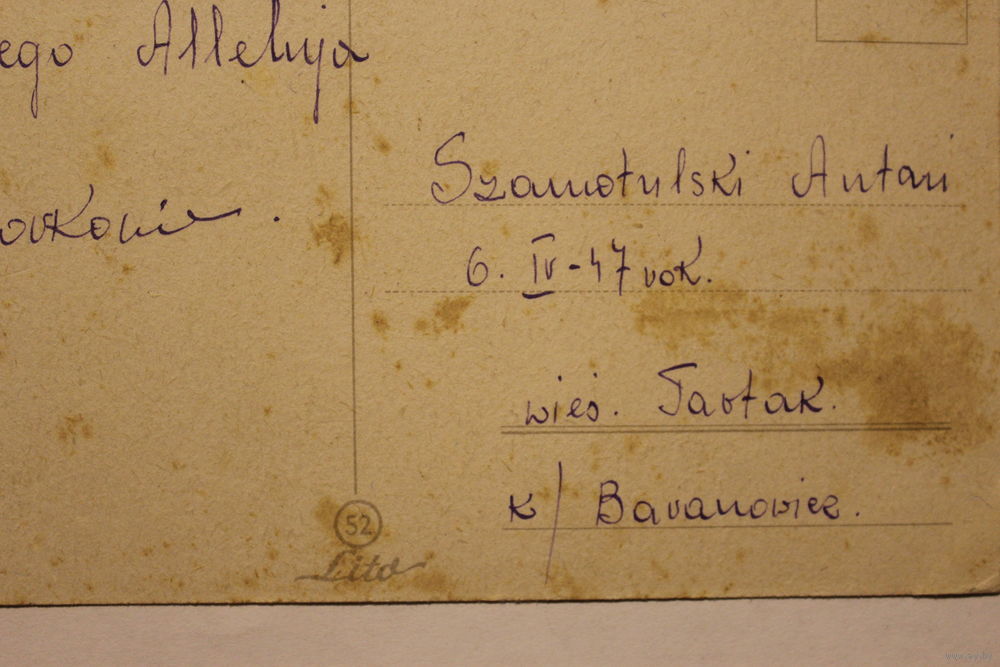 ego Alleluja
orkowie.
Szamotulski Antoni
6. IV - 47 rok.
wieś. Tartak.
k/ Baranowicz.
52
Lito